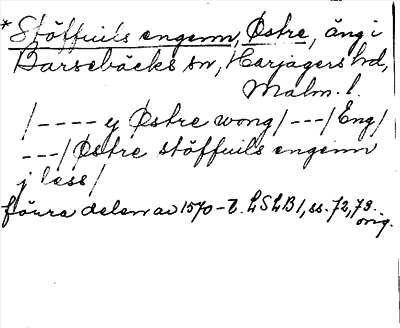 * Stöffuils engenn, Östre, äng i
Barsebäcks sn, Harjagers hd,
Malm. l.
/---- y Østre wong/---/Eng/
---/Østre stöffuils engenn
j less/
förra delen av 1570-t. LSLB 1, ss. 72, 73.
orig.